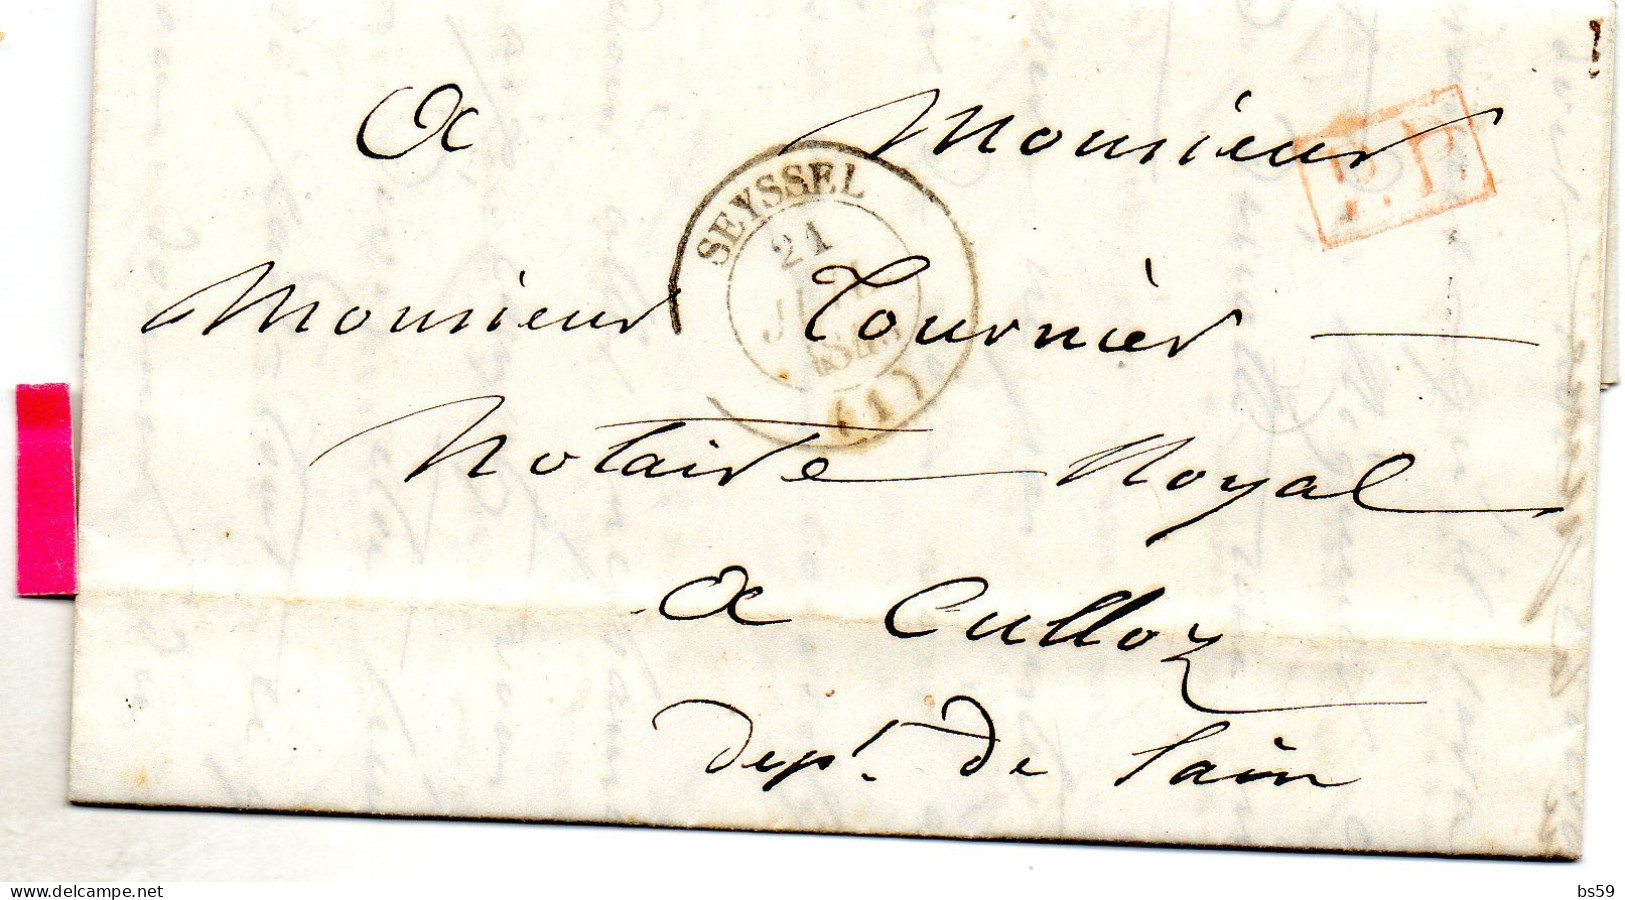 A Monsieur
P.P.
SEYSSEL
21
Monsieur Tournier
(1)
Notaire Royal
a Culloz
dept. de lain
delcampe.net
bs59